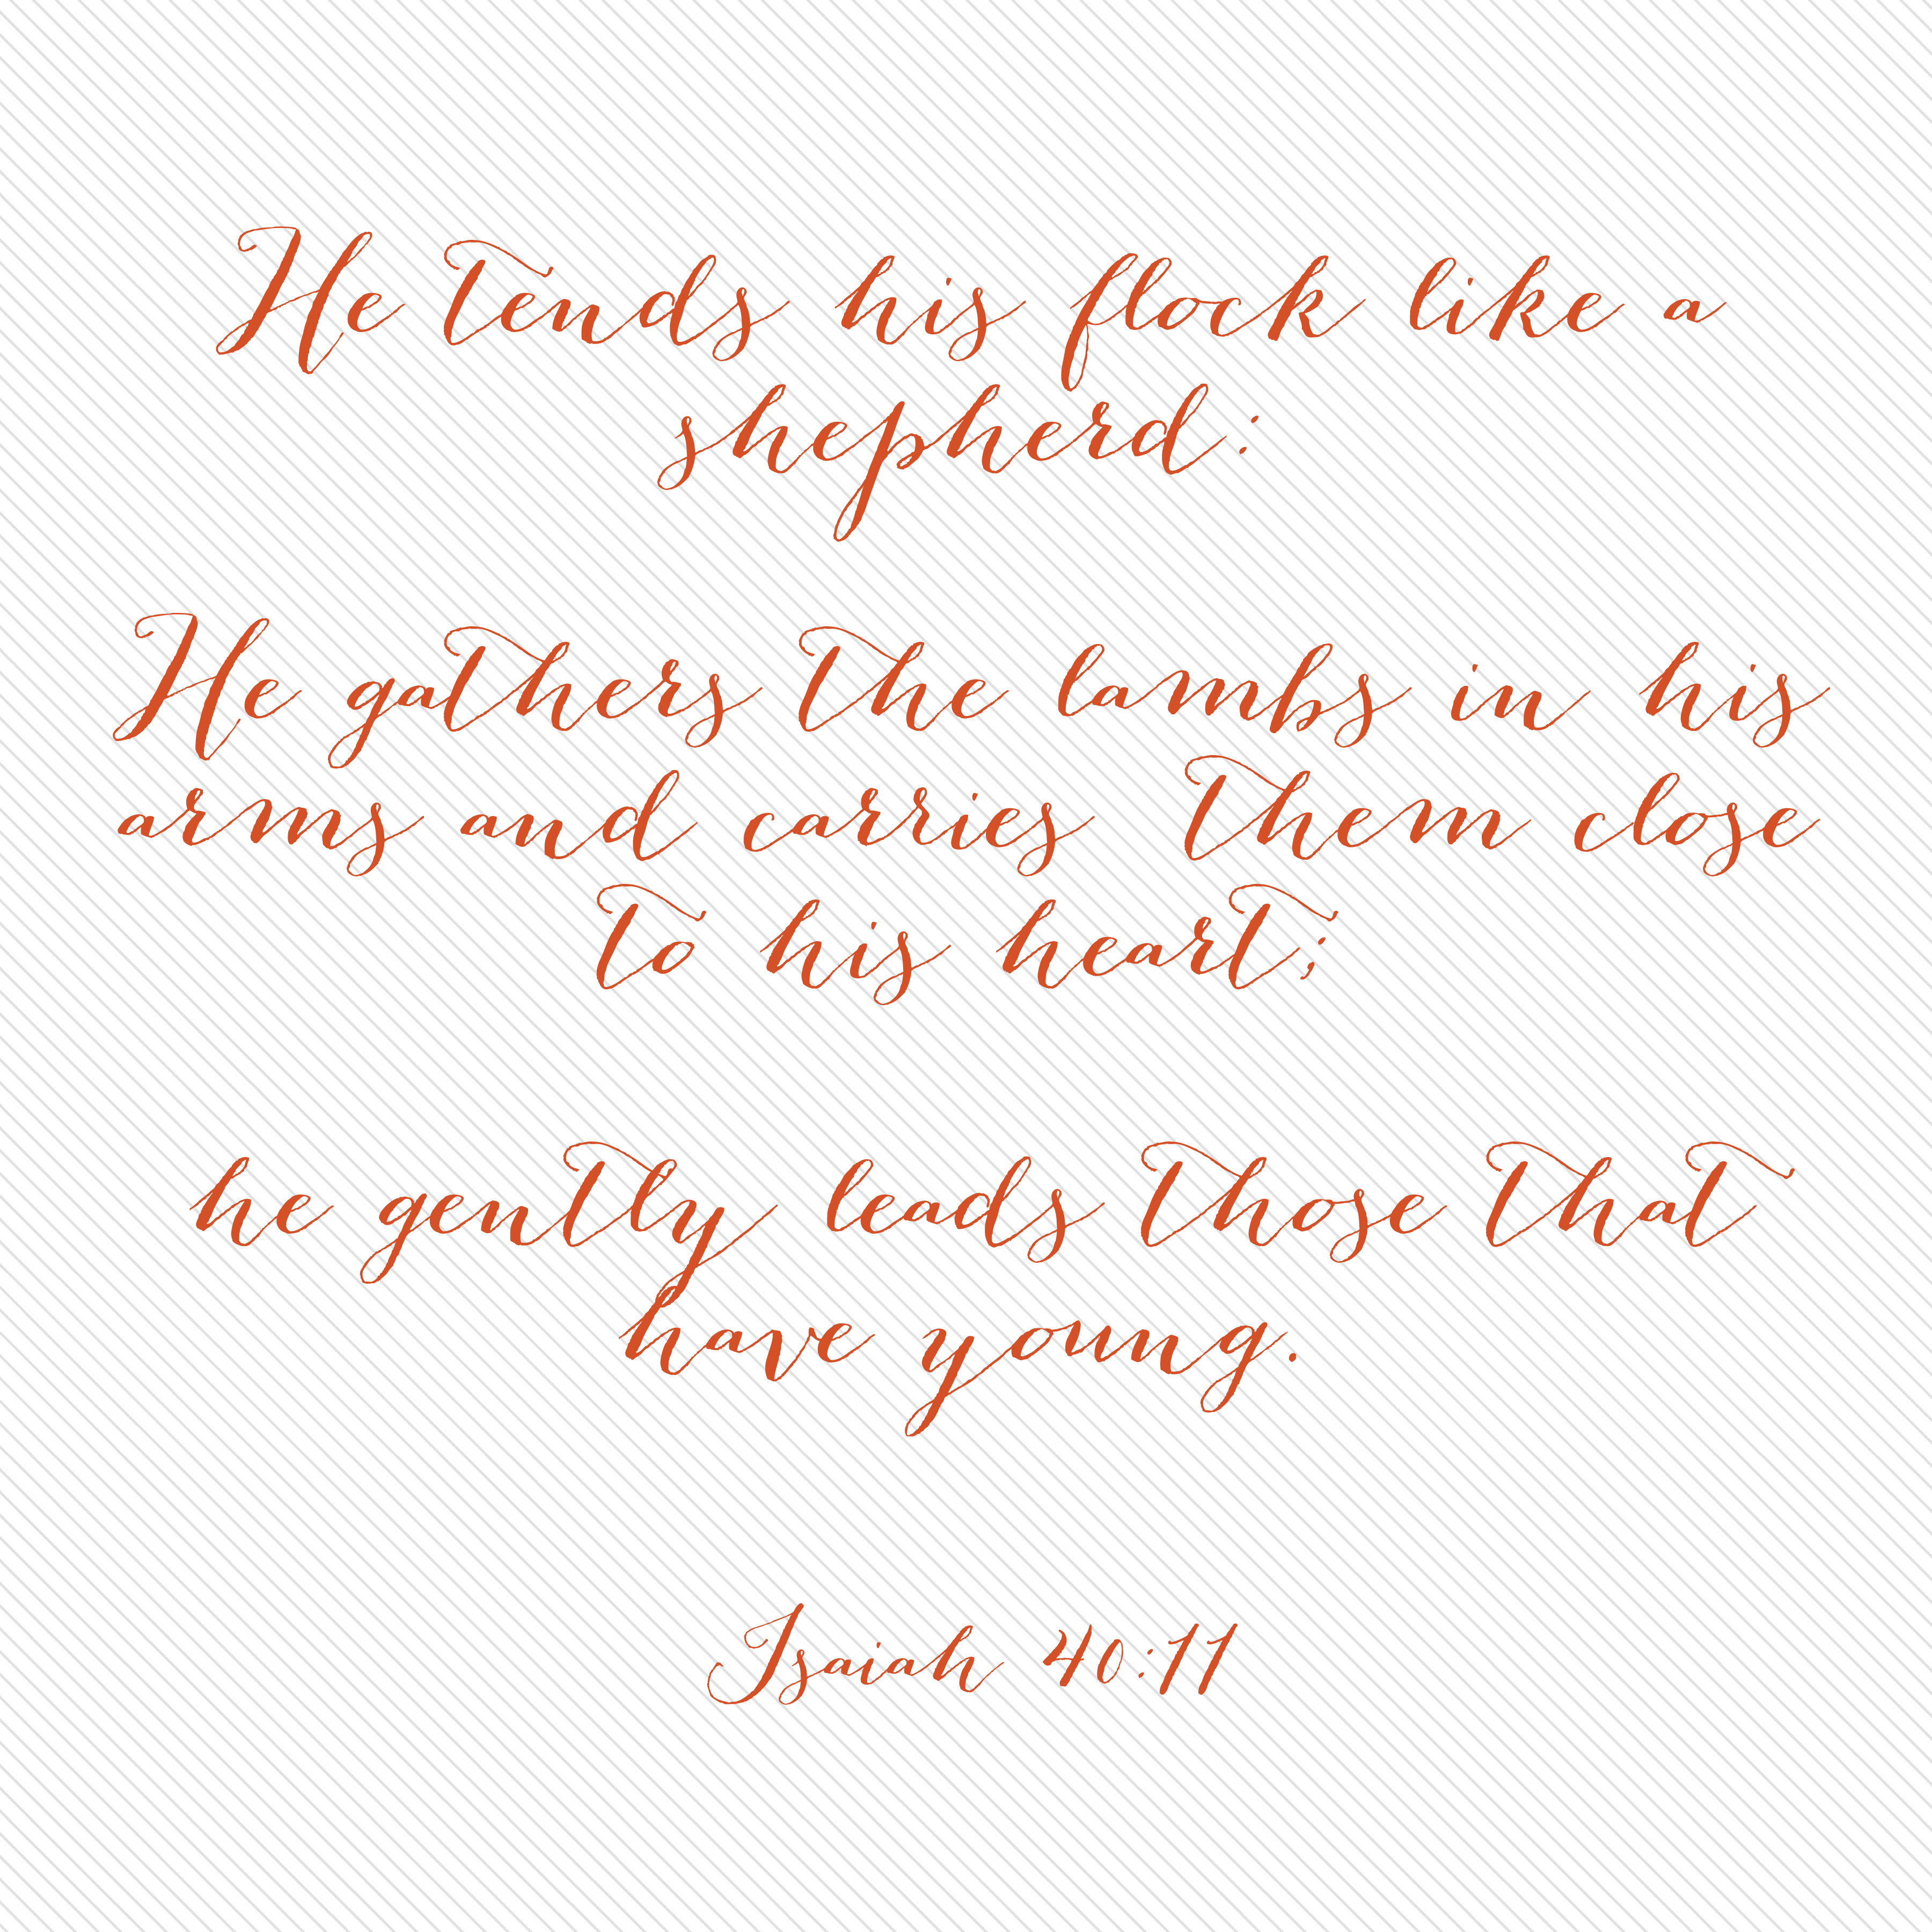 He tends his flock like a
shepherd:
He gathers the lambs in his
arms and carries them close
to his heart;
he gently leads those that
have young.
Isaiah 40:11